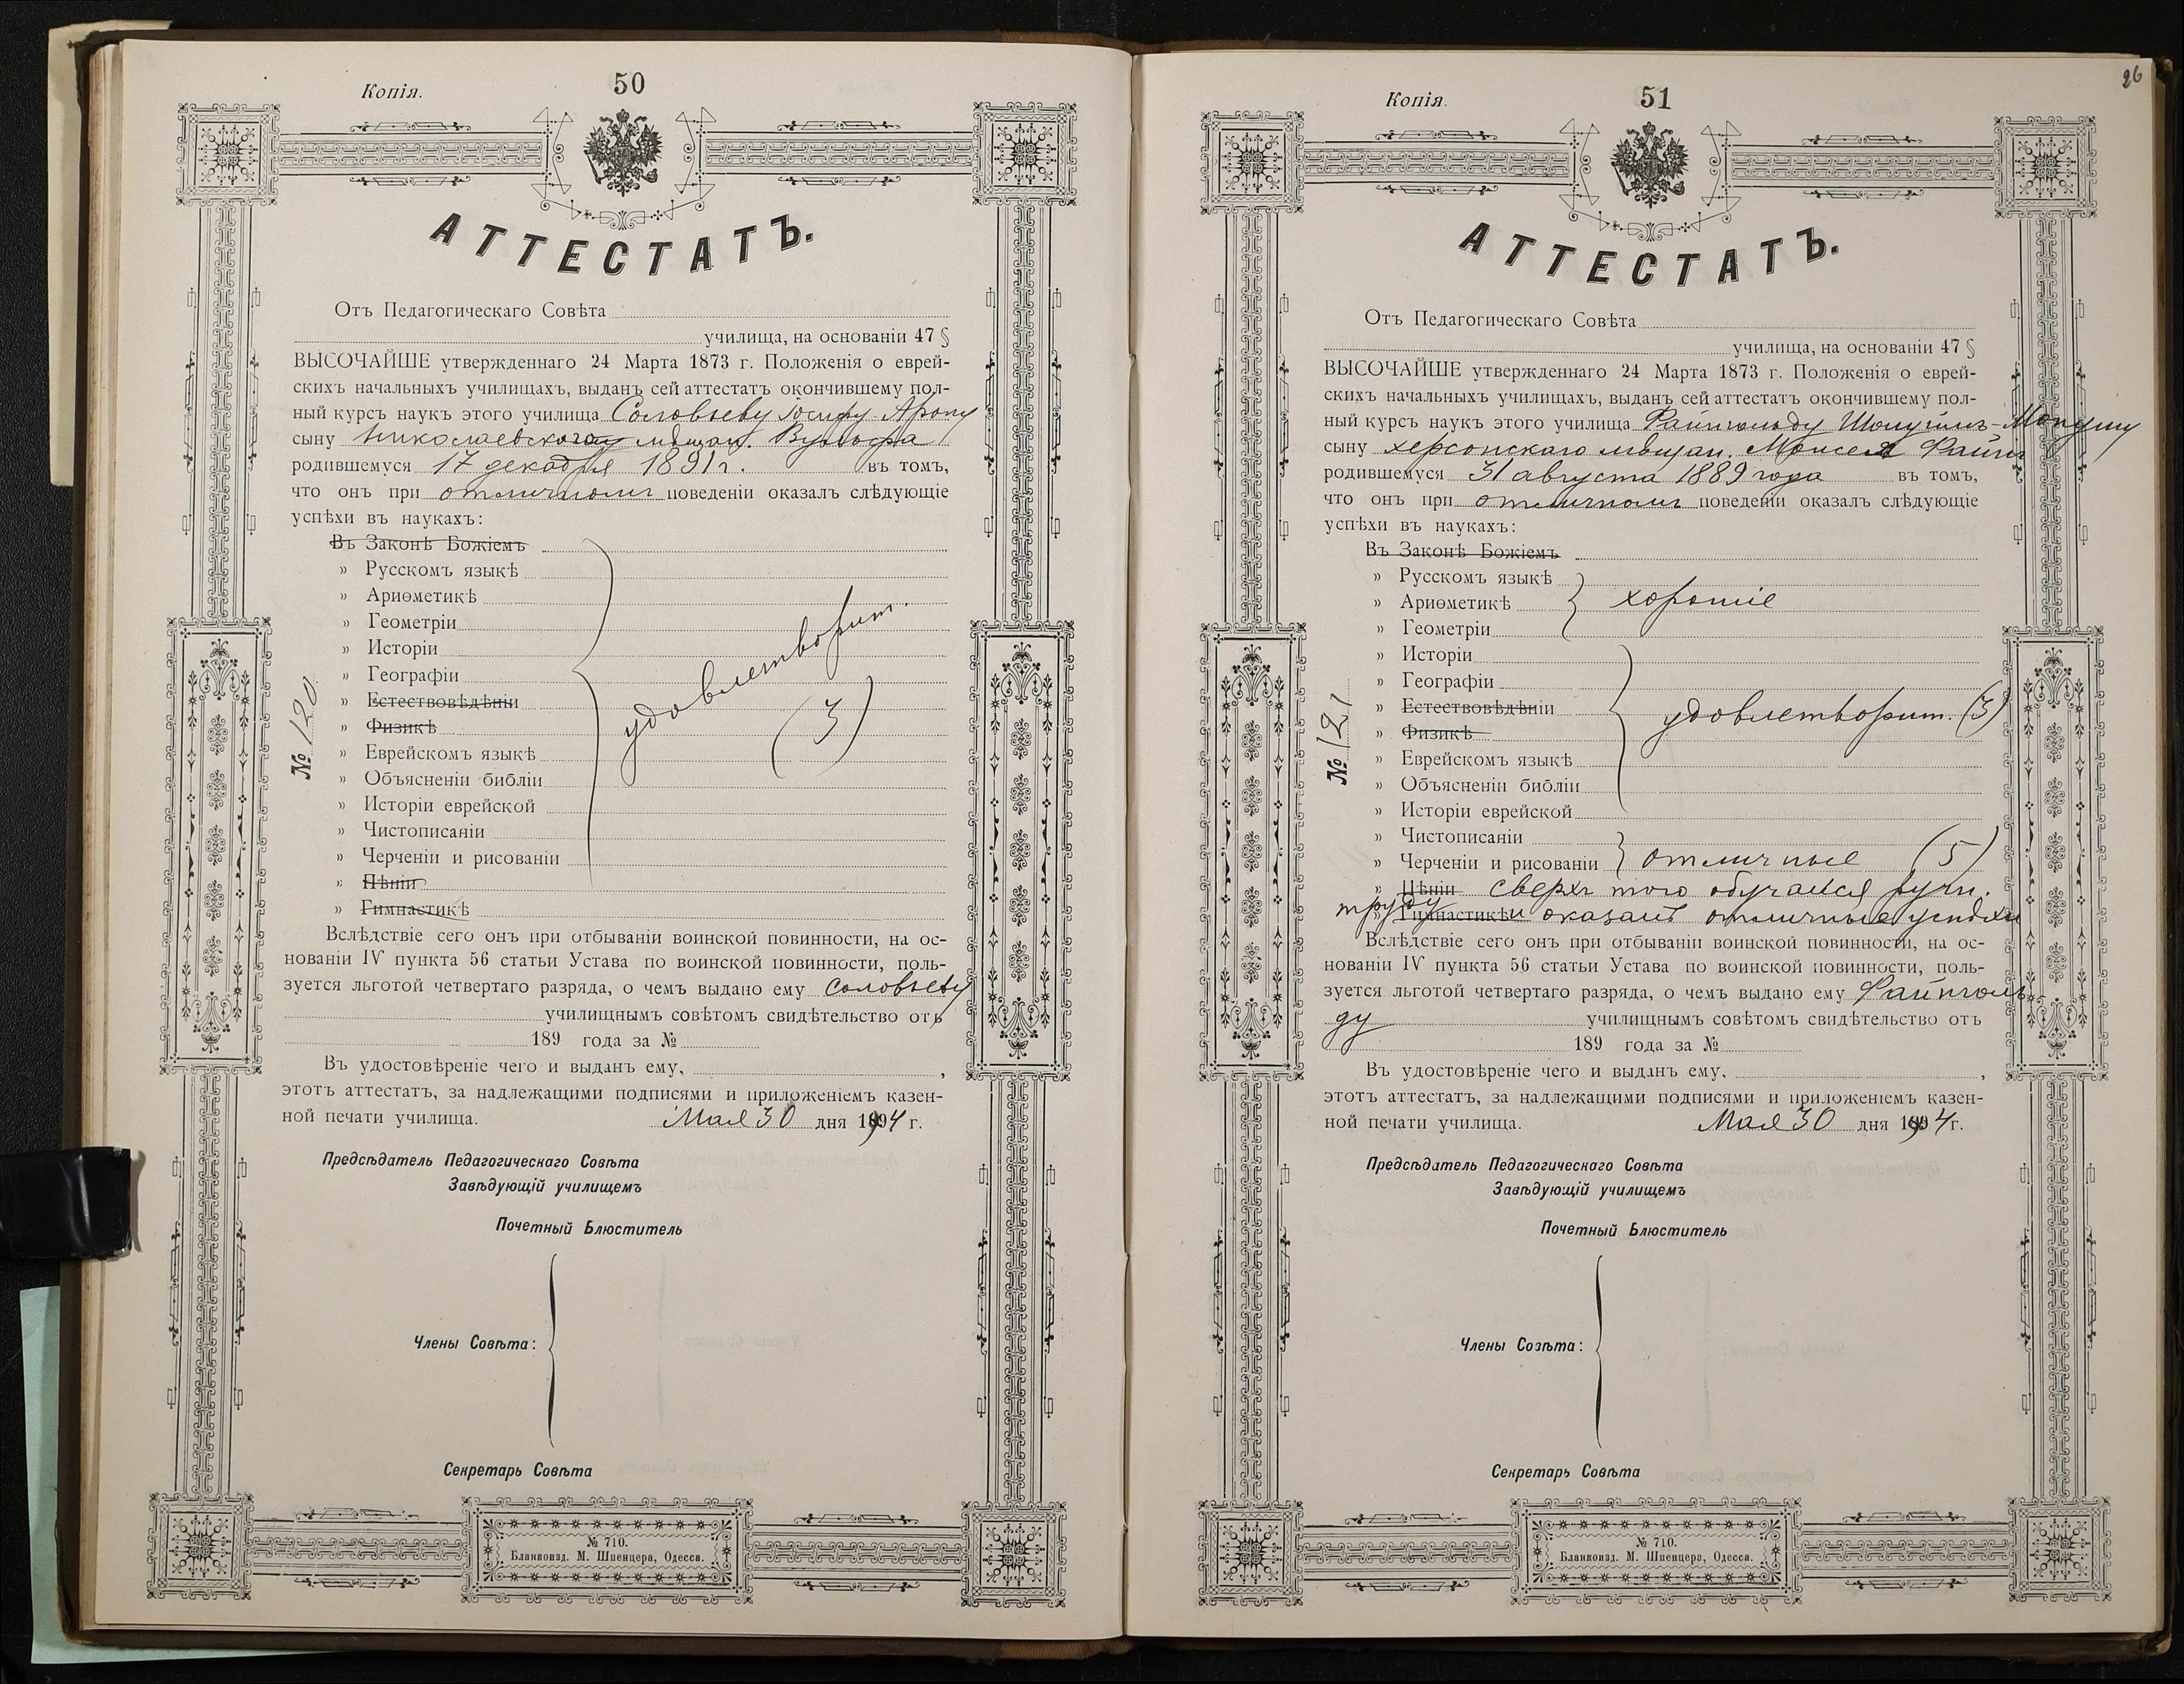 Копія.
50
АТТЕСТАТЪ.
Отъ Педагогическаго Совѣта
училища, на основаніи 47 §
ВЫСОЧАЙШЕ утвержденнаго 24 Марта 1873 г. Положенія о еврей-
скихъ начальныхъ училищахъ, выданъ сей аттестатъ окончившему пол-
ный курсъ наукъ этого училища Соловьеву Іосифу-Арону
сыну Николаевскаго мѣщан. Вульфа
родившемуся 17 декабря 1891 г. въ томъ,
что онъ при отличномъ поведеніи оказалъ слѣдующіе
успѣхи въ наукахъ:
Въ Законѣ Божіемъ
» Русскомъ языкѣ
» Ариѳметикѣ
» Геометріи
» Исторіи
» Географіи
» Естествовѣдѣніи
» Физикѣ
» Еврейскомъ языкѣ
» Объясненіи библіи
» Исторіи еврейской
» Чистописаніи
» Черченіи и рисованіи
» Пѣніи
» Гимнастикѣ
удовлетворит.
(3)
№ 120
Вслѣдствіе сего онъ при отбываніи воинской повинности, на ос-
нованіи IV пункта 56 статьи Устава по воинской повинности, поль-
зуется льготой четвертаго разряда, о чемъ выдано ему Соловьеву
училищнымъ совѣтомъ свидѣтельство отъ
189 года за №
Въ удостовѣреніе чего и выданъ ему, ,
этотъ аттестатъ, за надлежащими подписями и приложеніемъ казен-
ной печати училища. Мая 30 дня 1904 г.
Предсѣдатель Педагогическаго Совѣта
Завѣдующій училищемъ
Почетный Блюститель
Члены Совѣта:
Секретарь Совѣта
№ 710.
Бланкоизд. М. Шпенцера, Одесса.
26
Копія.
51
АТТЕСТАТЪ.
Отъ Педагогическаго Совѣта
училища, на основаніи 47 §
ВЫСОЧАЙШЕ утвержденнаго 24 Марта 1873 г. Положенія о еврей-
скихъ начальныхъ училищахъ, выданъ сей аттестатъ окончившему пол-
ный курсъ наукъ этого училища Файнгольду
сыну херсонскаго мѣщан. Моисея Файнг
родившемуся 31 августа 1889 года въ томъ,
что онъ при отличномъ поведеніи оказалъ слѣдующіе
успѣхи въ наукахъ:
Въ Законѣ Божіемъ
» Русскомъ языкѣ
» Ариѳметикѣ хорошіе
» Геометріи
» Исторіи
» Географіи
» Естествовѣдѣніи удовлетворит. (3)
» Физикѣ
» Еврейскомъ языкѣ
» Объясненіи библіи
» Исторіи еврейской
» Чистописаніи
» Черченіи и рисованіи отличные (5)
» Пѣніи сверхъ того обучался ручн.
труду
» Гимнастикѣ и оказалъ отличные успѣхи
№ 121
Вслѣдствіе сего онъ при отбываніи воинской повинности, на ос-
нованіи IV пункта 56 статьи Устава по воинской повинности, поль-
зуется льготой четвертаго разряда, о чемъ выдано ему Файнголь
ду училищнымъ совѣтомъ свидѣтельство отъ
189 года за №
Въ удостовѣреніе чего и выданъ ему, ,
этотъ аттестатъ, за надлежащими подписями и приложеніемъ казен-
ной печати училища. Мая 30 дня 1904 г.
Предсѣдатель Педагогическаго Совѣта
Завѣдующій училищемъ
Почетный Блюститель
Члены Созѣта:
Секретарь Совѣта
№ 710.
Бланкоизд. М. Шпенцера, Одесса.